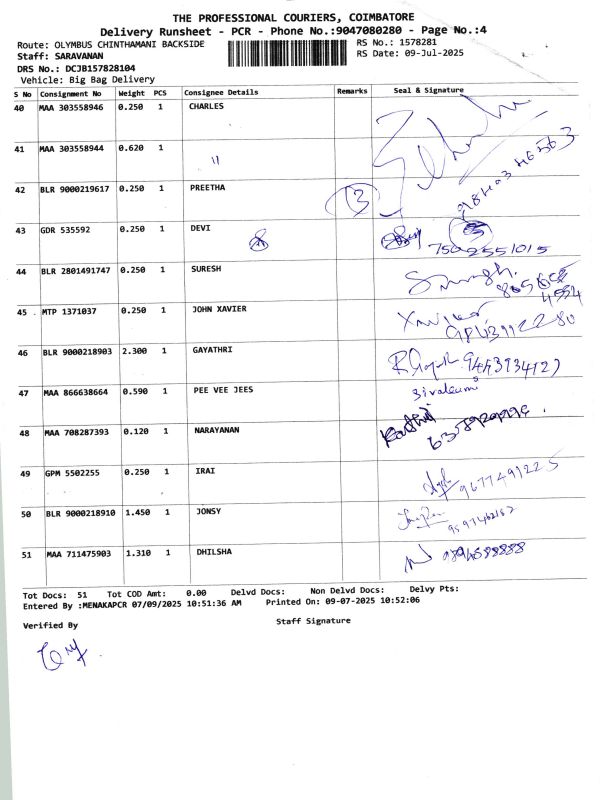 THE PROFESSIONAL COURIERS, COIMBATORE
Delivery Runsheet - PCR - Phone No.:9047080280 - Page No.:4
Route: OLYMBUS CHINTHAMANI BACKSIDE
RS No.: 1578281
Staff: SARAVANAN
RS Date: 09-Jul-2025
DRS No.: DCJB157828104
Vehicle: Big Bag Delivery
S No Consignment No Weight PCS Consignee Details Remarks Seal & Signature
40 MAA 303558946 0.250 1 CHARLES
41 MAA 303558944 0.620 1 "
42 BLR 9000219617 0.250 1 PREETHA 3
43 GDR 535592 0.250 1 DEVI 7502551015
44 BLR 2801491747 0.250 1 SURESH
45 MTP 1371037 0.250 1 JOHN XAVIER Xavier
46 BLR 9000218903 2.300 1 GAYATHRI
47 MAA 866638664 0.590 1 PEE VEE JEES Sivalaxmi
48 MAA 708287393 0.120 1 NARAYANAN
49 GPM 5502255 0.250 1 IRAI 9677491225
50 BLR 9000218910 1.450 1 JONSY
51 MAA 711475903 1.310 1 DHILSHA
Tot Docs: 51 Tot COD Amt: 0.00 Delvd Docs: Non Delvd Docs: Delvy Pts:
Entered By :MENAKAPCR 07/09/2025 10:51:36 AM Printed On: 09-07-2025 10:52:06
Verified By
Staff Signature